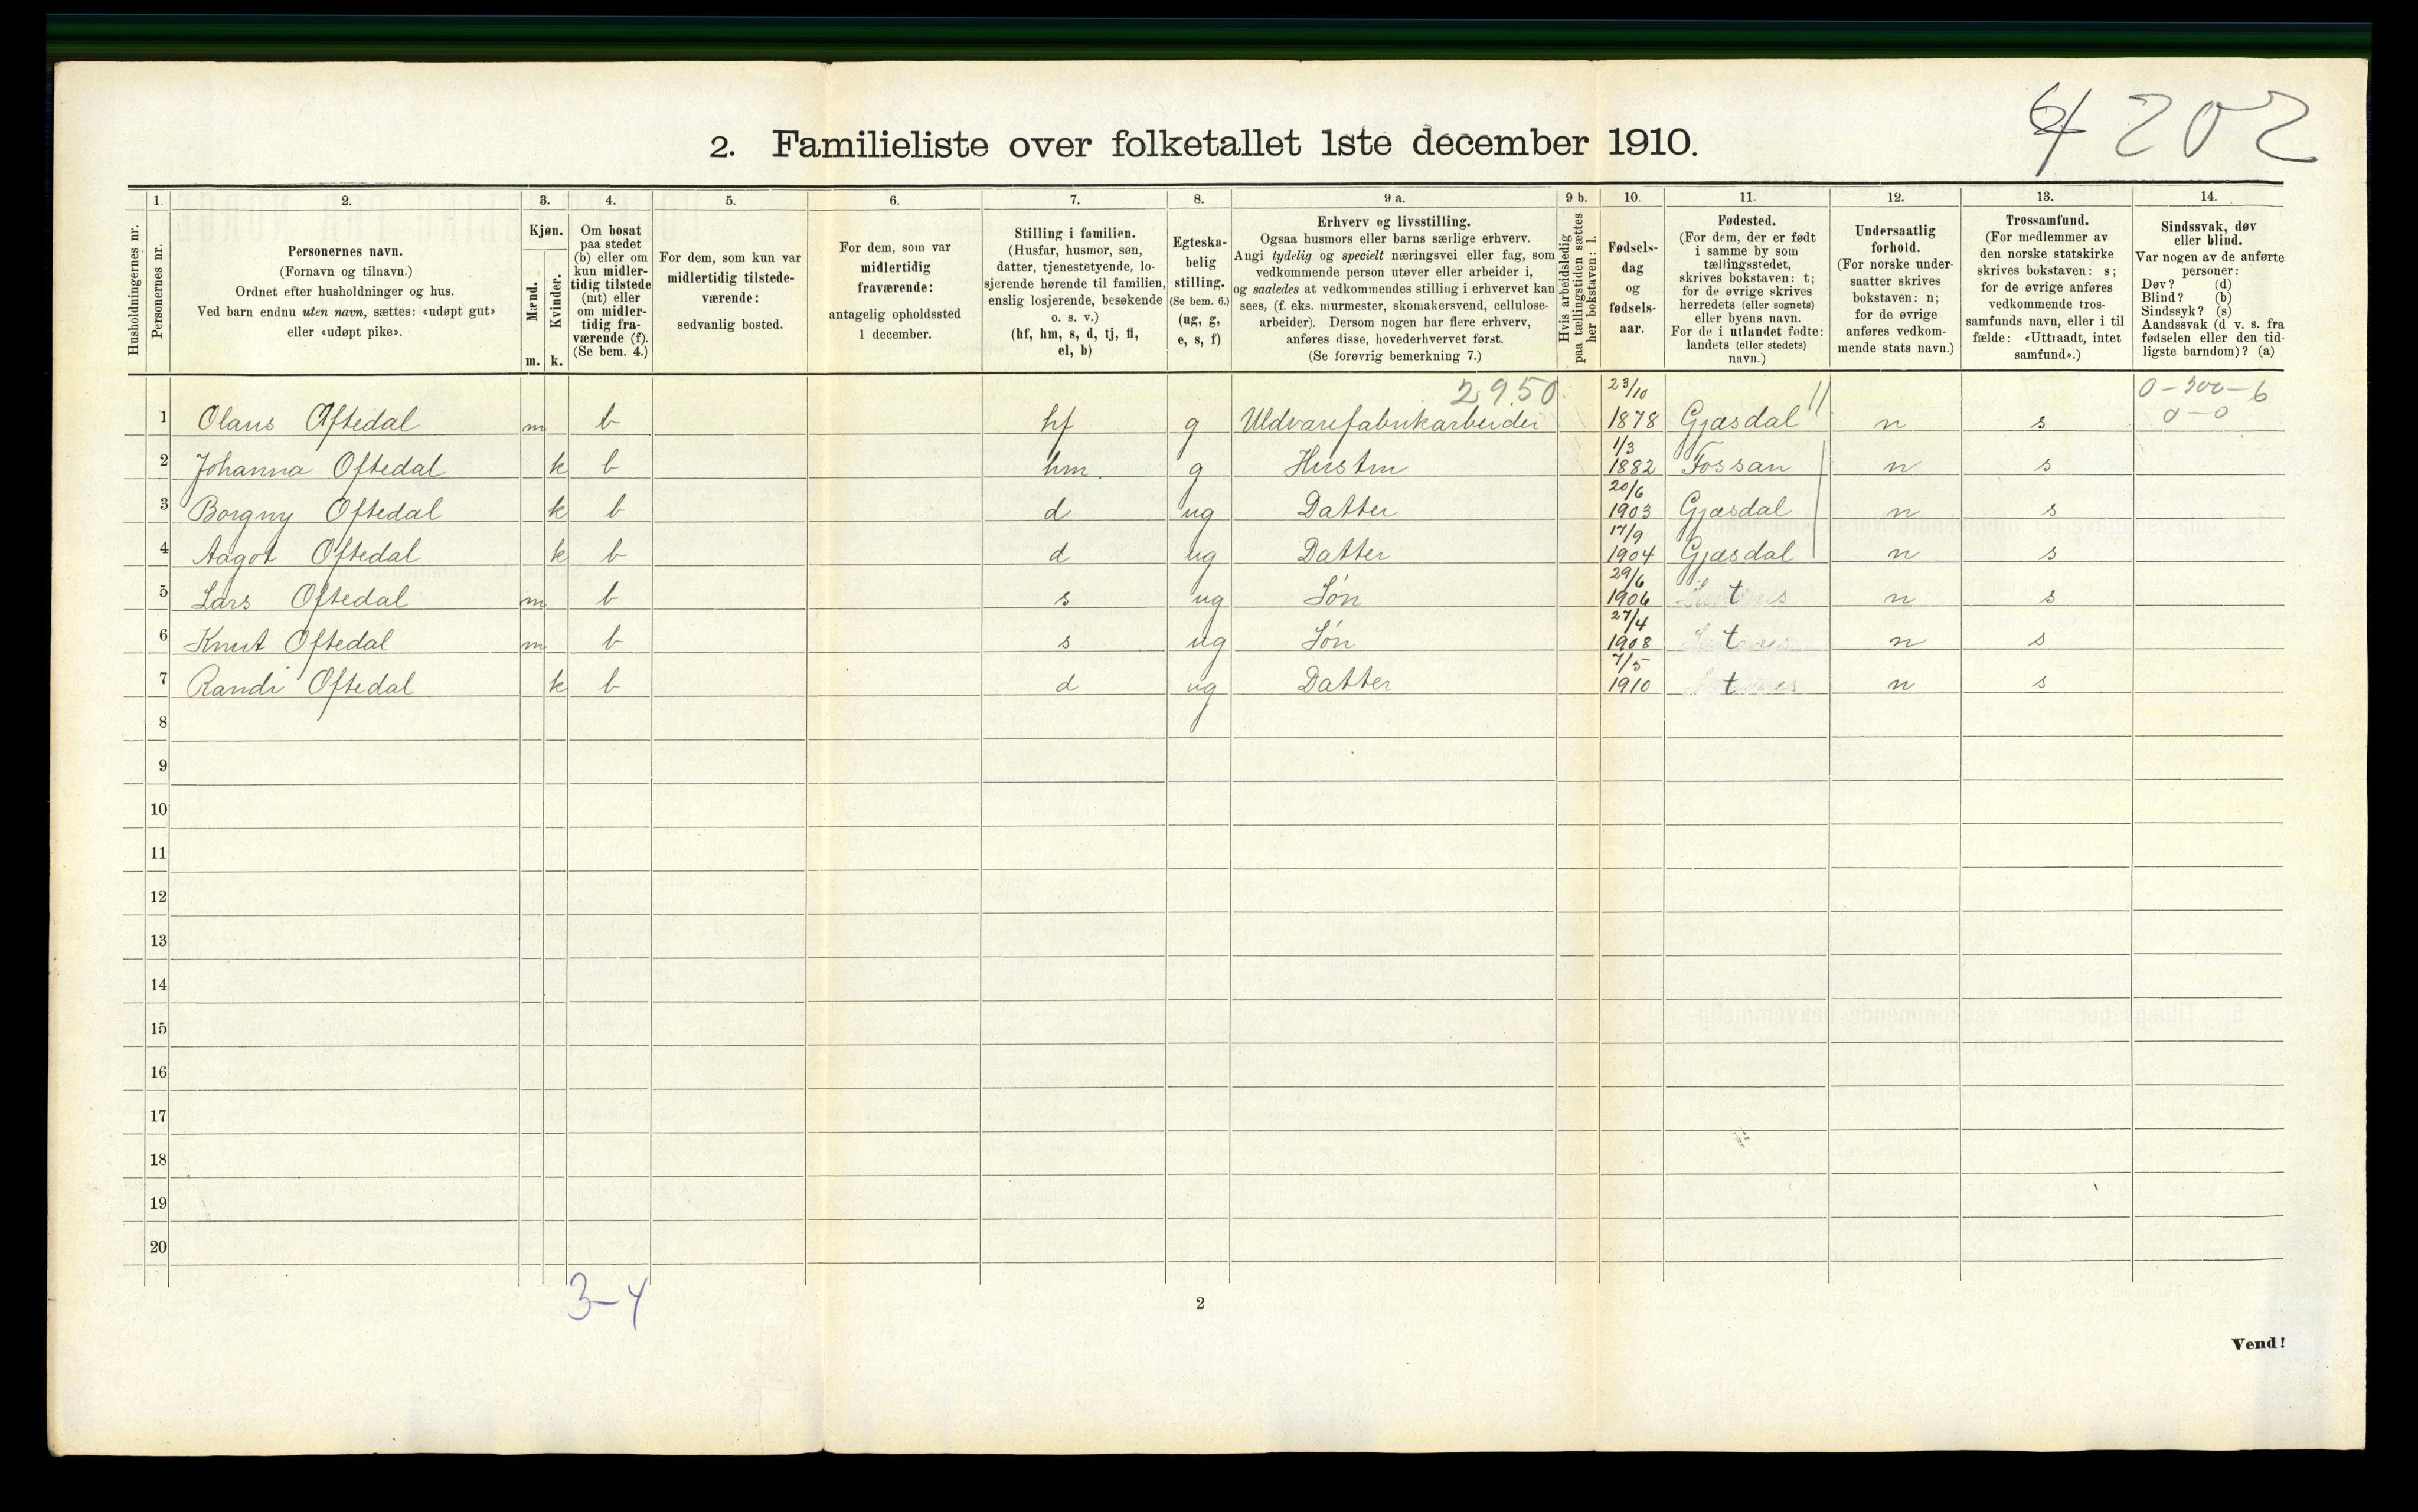 64 202
2. Familieliste over folketallet 1ste december 1910.
Husholdningernes nr.
1. Personernes nr.
2. Personernes navn. (Fornavn og tilnavn.) Ordnet efter husholdninger og hus. Ved barn endnu uten navn, sættes: «udøpt gut» eller «udøpt pike».
3. Kjøn. Mænd. m. Kvinder. k.
4. Om bosat paa stedet (b) eller om kun midlertidig tilstede (mt) eller om midlertidig fraværende (f). (Se bem. 4.)
5. For dem, som kun var midlertidig tilstedeværende: sedvanlig bosted.
6. For dem, som var midlertidig fraværende: antagelig opholdssted 1 december.
7. Stilling i familien. (Husfar, husmor, søn, datter, tjenestetyende, losjerende hørende til familien, enslig losjerende, besøkende o. s. v.) (hf, hm, s, d, tj, fl, el, b)
8. Egteskabelig stilling. (Se bem. 6.) (ug, g, e, s, f)
9 a. Erhverv og livsstilling. Ogsaa husmors eller barns særlige erhverv. Angi tydelig og specielt næringsvei eller fag, som vedkommende person utøver eller arbeider i, og saaledes at vedkommendes stilling i erhvervet kan sees, (f. eks. murmester, skomakersvend, cellulosearbeider). Dersom nogen har flere erhverv, anføres disse, hovederhvervet først. (Se forøvrig bemerkning 7.)
9 b. Hvis arbeidsledig paa tællingstiden sættes her bokstaven: l.
10. Fødselsdag og fødselsaar.
11. Fødested. (For dem, der er født i samme by som tællingsstedet, skrives bokstaven: t; for de øvrige skrives herredets (eller sognets) eller byens navn. For de i utlandet fødte: landets (eller stedets) navn.)
12. Undersaatlig forhold. (For norske undersaatter skrives bokstaven: n; for de øvrige anføres vedkommende stats navn.)
13. Trossamfund. (For medlemmer av den norske statskirke skrives bokstaven: s; for de øvrige anføres vedkommende trossamfunds navn, eller i tilfælde: «Uttraadt, intet samfund».)
14. Sindssvak, døv eller blind. Var nogen av de anførte personer: Døv? (d) Blind? (b) Sindssyk? (s) Aandssvak (d v. s. fra fødselen eller den tidligste barndom)? (a)
2950. 0-300-6
1 Olaus Oftedal m b hf g Uldvarefabrikarbeider 23/10 1878 Gjæsdal n s 0-0
2 Johanna Oftedal k b hm g Hustru 1/3 1882 Fossan n s
3 Borgny Oftedal k b d ug Datter 20/6 1903 Gjæsdal n s
4 Aagot Oftedal k b d ug Datter 17/9 1904 Gjæsdal n s
5 Lars Oftedal m b s ug Søn 29/6 1906 t n s
6 Knut Oftedal m b s ug Søn 27/4 1908 t n s
7 Randi Oftedal k b d ug Datter 7/5 1910 t n s
8
9
10
11
12
13
14
15
16
17
18
19
20
3-4
2
Vend!